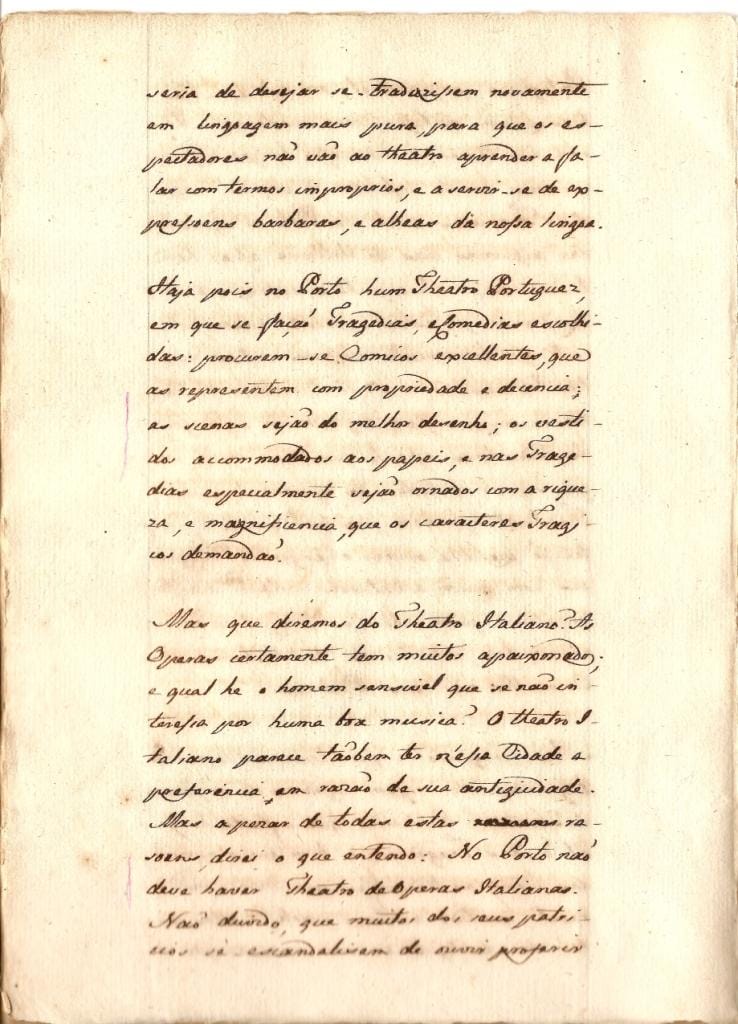 seria de desejar se traduzissem novamente
em lingoagem mais pura, para que os es-
pectadores naõ vaõ ao theatro aprender a fa-
lar com termos improprios, e a servir-se de ex-
pressoens barbaras, e alheas da nossa lingoa.
Haja pois no Porto hum Theatro Portuguez,
em que se façaõ Tragedias, e Comedias escolhi-
das: procurem-se Comicos excellentes, que
as representem com propriedade e decencia;
as scenas sejaõ do melhor desenho; os vesti-
dos accommodados aos papeis, e nas Trage-
dias especialmente sejaõ ornados com a rique-
za, e magnificencia, que os caracteres Tragi-
cos demandaõ.
Mas que diremos do Theatro Italiano? As
Operas certamente tem muitos apaixonados;
e qual he o homem sensivel que se naõ in-
teressa por huma boa musica? O theatro I-
taliano parece taõbem ter n'essa Cidade a
preferencia, em razaõ de sua antiguidade.
Mas a pezar de todas estas ra-
soens, direi o que entendo: No Porto naõ
deve haver Theatro de Operas Italianas.
Naõ duvido, que muitos dos seus patri-
cios se escandalisem de ouvir proferir